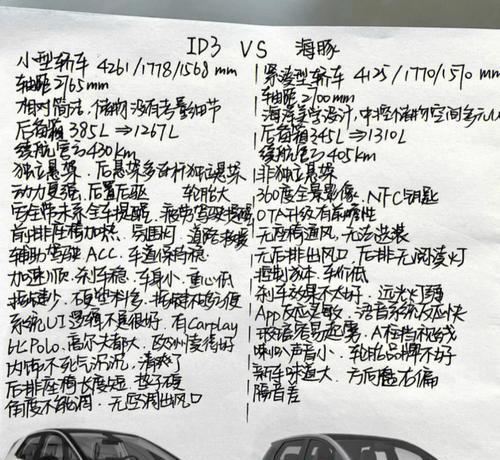 ID3 VS 海豚
小型轿车 4261/1778/1568 mm
轴距2765mm
相对简洁、储物没有考量细节
后备箱 385L ⇒1267L
续航官方430km
独立悬架、后悬架多连杆独立悬架
动力更强、后置后驱 轮胎大
安全带未系全车提醒、疲劳驾驶提醒
前排座椅加热、易困灯、道路救援
辅助驾驶ACC、车道保持稳
加速顺、刹车稳、车身小、重心低
按键少、不便
系统UI逻辑不是很好、有Carplay
比Polo、高尔夫都大、欧州卖得好
内饰不死气沉沉、清爽了
后排座椅长度短、垫子硬
角度不能调、无空调出风口
紧凑型轿车 4125/1770/1570 mm
轴距2700mm
海洋美学设计、中控储物空间多元
后备箱345L⇒1310L
续航官方405km
非独立悬架
360度全景影像、NFC钥匙
OTA升级有前瞻性
无座椅通风、无法选装
无后排出风口、后排无阅读灯
控制成本、车价低
刹车效果不太好、远光灯
App反应灵敏、语音系统反应快
玻璃容易起雾、A柱挡视线
喇叭声音小、轮胎品牌不好
新车味道大、方向盘右偏
隔音差